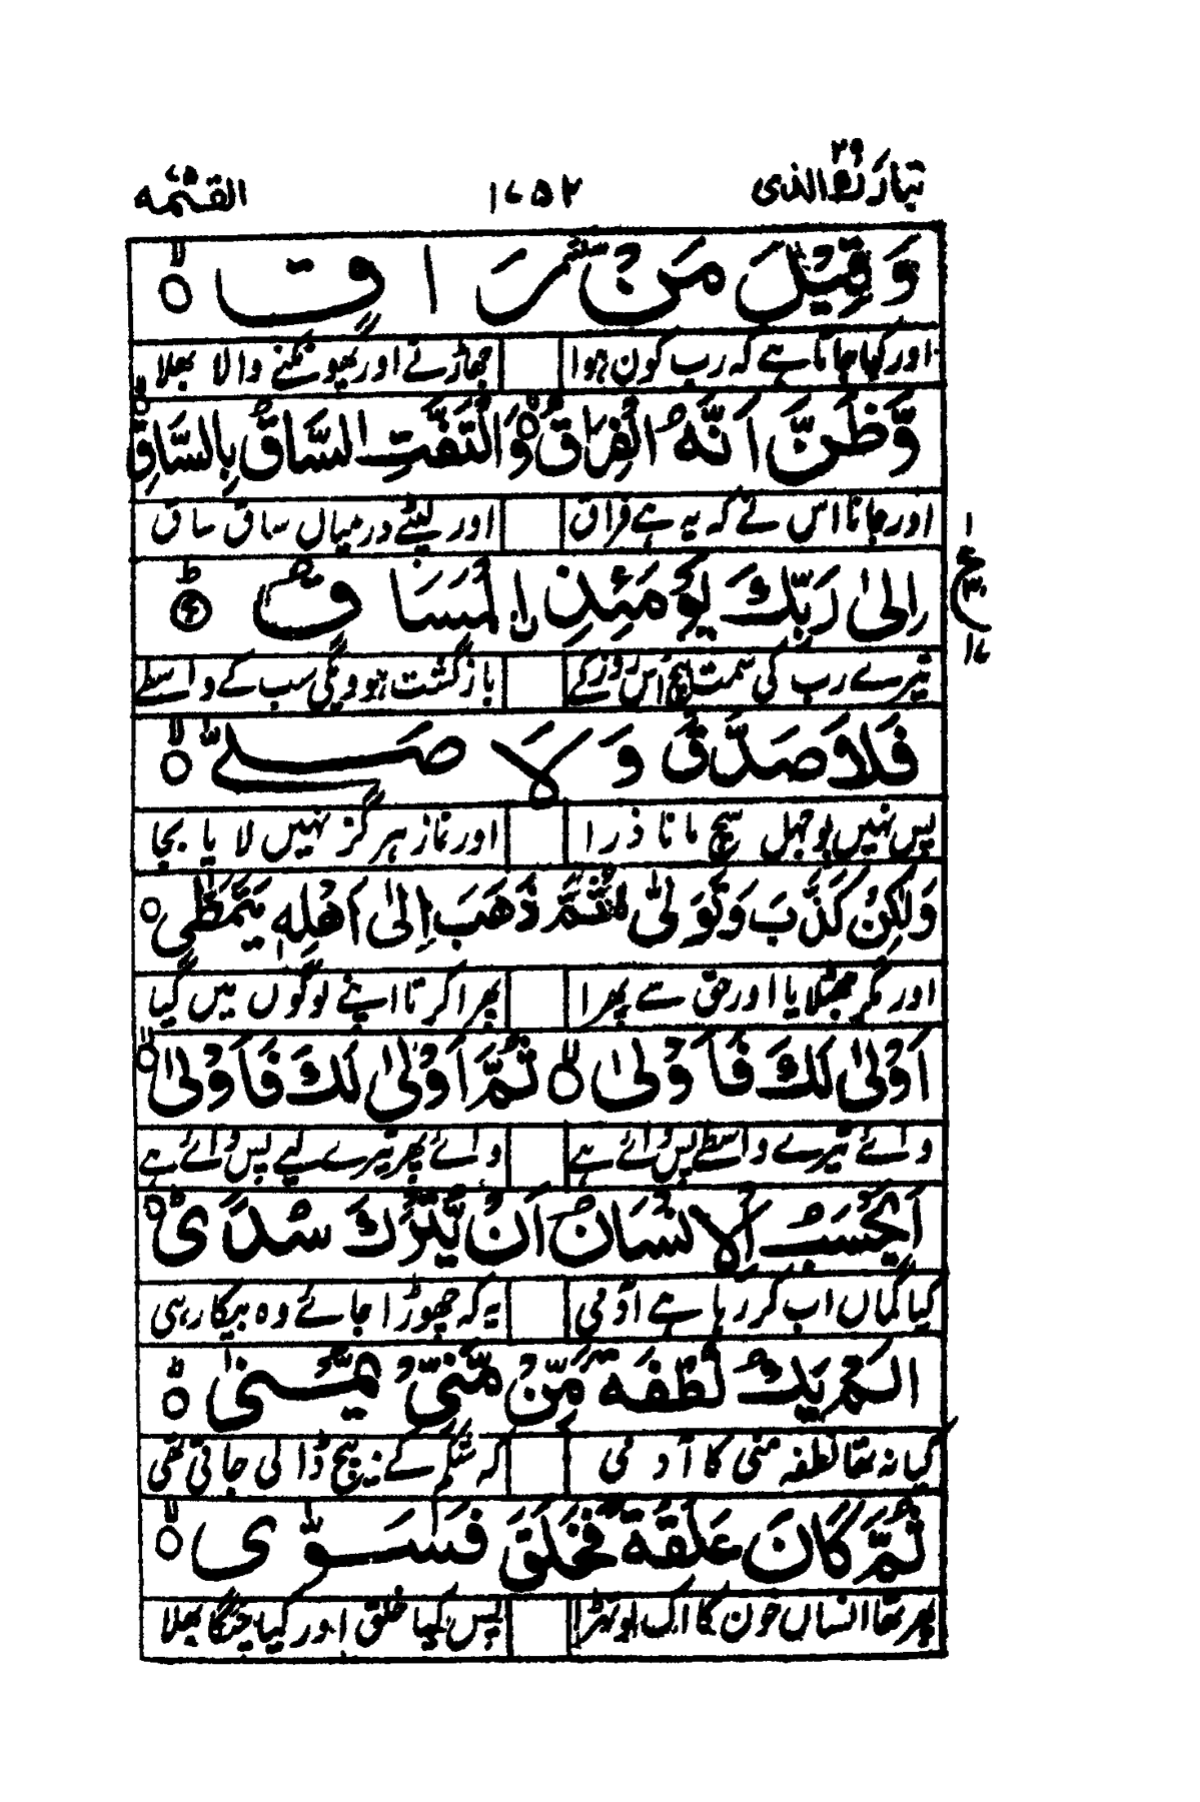 تبارک الذی ۲۹ ۱۷۵۲ القیٰمة ۷۵
وَقِيْلَ مَنْ سكتة رَاقٍ ۙ
اور کہا جاتا ہے کہ رب کون ہوا جھاڑنے اور پھونکنے والا بھلا
وَّظَنَّ اَنَّهُ الْفِرَاقُ ۙ وَالْتَفَّتِ السَّاقُ بِالسَّاقِ ۙ
اور جانا اس نے کہ یہ ہے فراق اور لپٹے درمیاں ساق ساق
اِلٰى رَبِّكَ يَوْمَئِذِ ِۨالْمَسَاقُ ؕ
تیرے رب کی سمت بیچ اس روز کے بازگشت ہوویگی سب کے واسطے
۱ ع ۳۰ ۱۷
فَلَا صَدَّقَ وَلَا صَلّٰى ۙ
پس نہیں بوجہل سچ مانا ذرا اور نماز ہرگز نہیں لایا بجا
وَلٰكِنْ كَذَّبَ وَتَوَلّٰى ۙ ثُمَّ ذَهَبَ اِلٰٓى اَهْلِهٖ يَتَمَطّٰى
اور مگر جھٹلایا اور حق سے پھرا پھر اکرتا اپنے لوگوں میں گیا
اَوْلٰى لَكَ فَاَوْلٰى ۙ ثُمَّ اَوْلٰى لَكَ فَاَوْلٰى ۙ
وائے تیرے واسطے پس وائے ہے وائے پھر تیرے لیے پس وائے ہے
اَيَحْسَبُ الْاِنْسَانُ اَنْ يُّتْرَكَ سُدًى ؕ
کیا گماں اب کر رہا ہے آدمی یہ کہ چھوڑا جائے وہ بیکار ہی
اَلَمْ يَكُ نُطْفَةً مِّنْ مَّنِىٍّ يُّمْنٰى ؕ
کیا نہ تھا نطفہ منی کا آدمی کہ شکم کے بیچ ڈالی جاتی تھی
ثُمَّ كَانَ عَلَقَةً فَخَلَقَ فَسَوّٰى ۙ
پھر تھا انساں خون کا اک لوتھڑا پس کیا خلق اور کیا چنگا بھلا